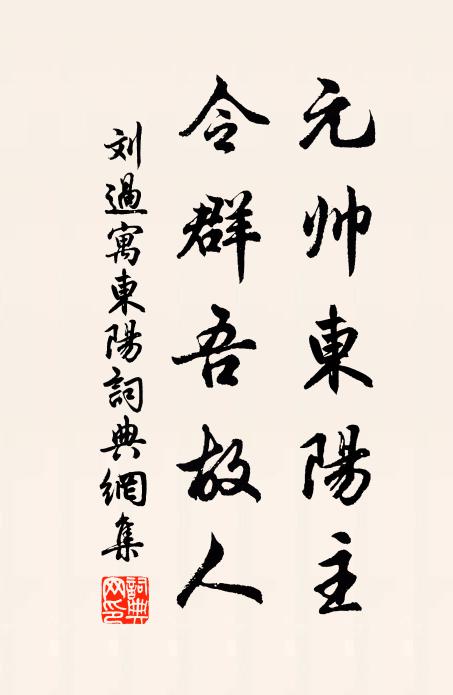 元帅東陽主
令群吾故人
刘過寓東陽詞典網集
詞典網印